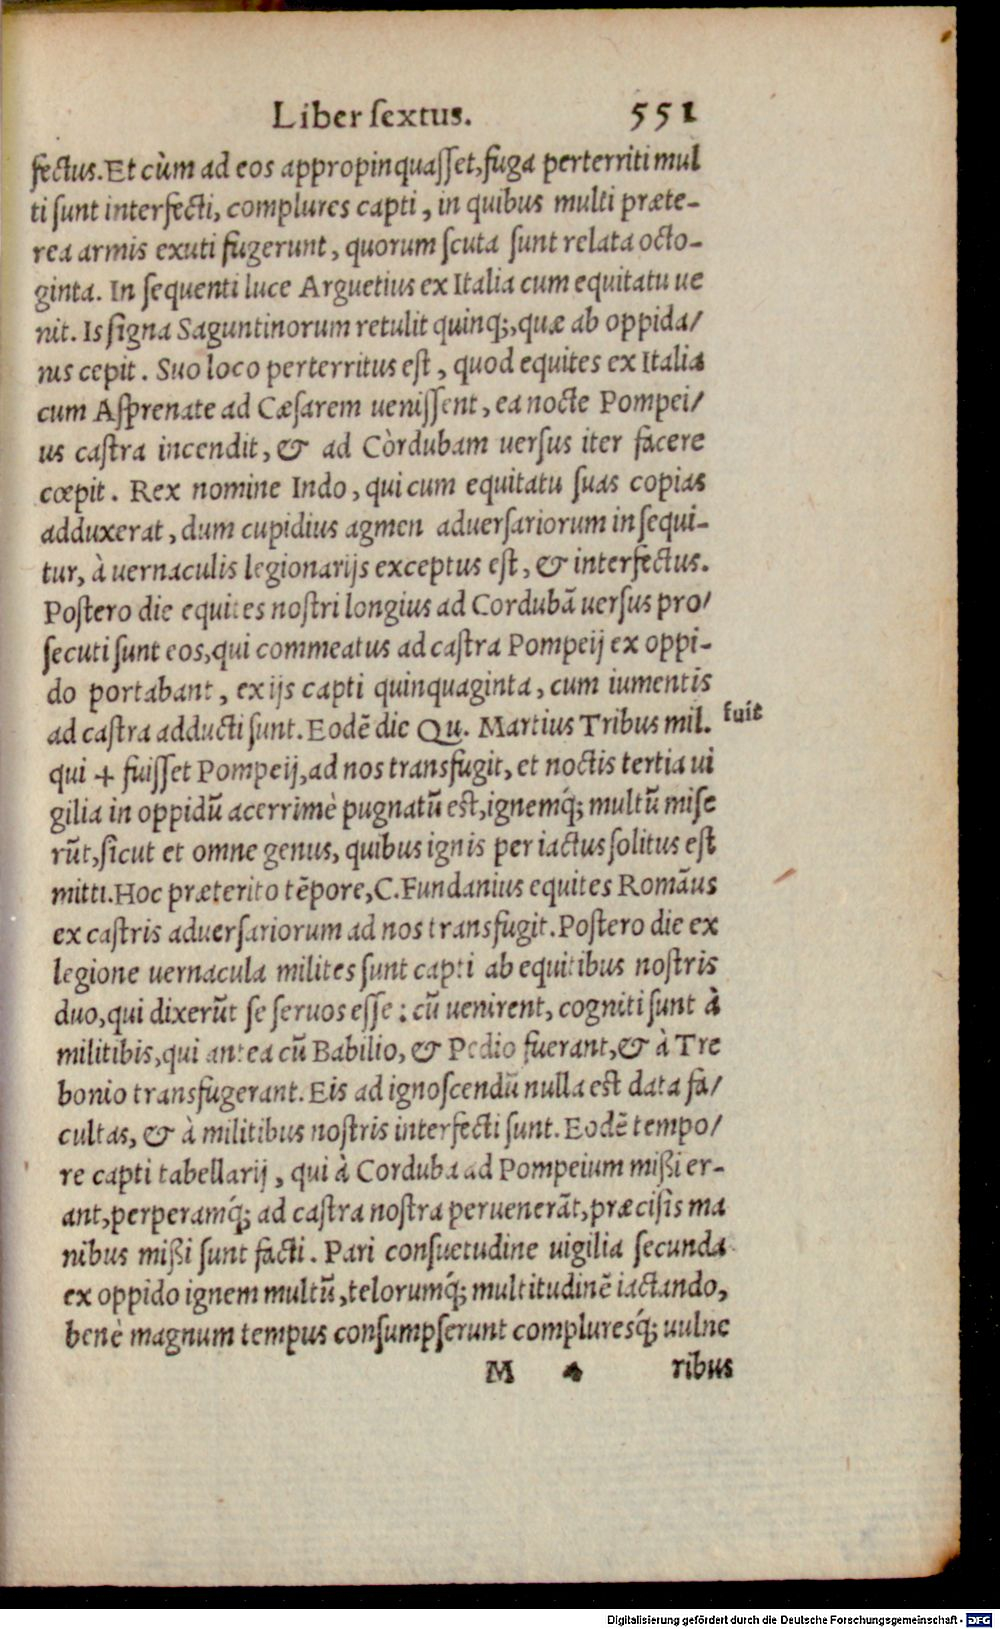 Liber ſextus. 551
fectus. Et cùm ad eos appropinquaſſet, fuga perterriti mul
ti ſunt interfecti, complures capti, in quibus multi præte-
rea armis exuti fugerunt, quorum ſcuta ſunt relata octo-
ginta. In ſequenti luce Arguetius ex Italia cum equitatu ue
nit. Is ſigna Saguntinorum retulit quinq;, quæ ab oppida/
nis cepit. Suo loco perterritus eſt, quod equites ex Italia
cum Aſprenate ad Cæſarem ueniſſent, ea nocte Pompei/
us caſtra incendit, & ad Còrdubam uerſus iter facere
cœpit. Rex nomine Indo, qui cum equitatu ſuas copias
adduxerat, dum cupidius agmen aduerſariorum inſequi-
tur, à uernaculis legionarijs exceptus eſt, & interfectus.
Poſtero die equites noſtri longius ad Cordubā uerſus pro/
ſecuti ſunt eos, qui commeatus ad caſtra Pompeij ex oppi-
do portabant, ex ijs capti quinquaginta, cum iumentis
ad caſtra adducti ſunt. Eodē die Qu. Martius Tribus mil. fuit
qui + fuiſſet Pompeij, ad nos transfugit, et noctis tertia ui
gilia in oppidū acerrimè pugnatū est, ignemq́; multū miſe
rūt, ſicut et omne genus, quibus ignis per iactus ſolitus eſt
mitti. Hoc præterito tēpore, C. Fundanius equites Romāus
ex caſtris aduerſariorum ad nos transfugit. Poſtero die ex
legione uernacula milites ſunt capti ab equitibus noſtris
duo, qui dixerūt ſe ſeruos eſſe: cū uenirent, cogniti ſunt à
militibis, qui antea cū Babilio, & Pedio fuerant, & à Tre
bonio transfugerant. Eis ad ignoſcendū nulla est data fa/
cultas, & à militibus noſtris interfecti ſunt. Eodē tempo/
re capti tabellarij, qui à Corduba ad Pompeium mißi er-
ant, perperamq́; ad caſtra noſtra peruenerāt, præciſis ma
nibus mißi ſunt facti. Pari conſuetudine uigilia ſecunda
ex oppido ignem multū, telorumq́; multitudinē iactando,
benè magnum tempus conſumpſerunt complureſq́; uulne
M 4 ribus
Digitalisierung gefördert durch die Deutsche Forschungsgemeinschaft - DFG